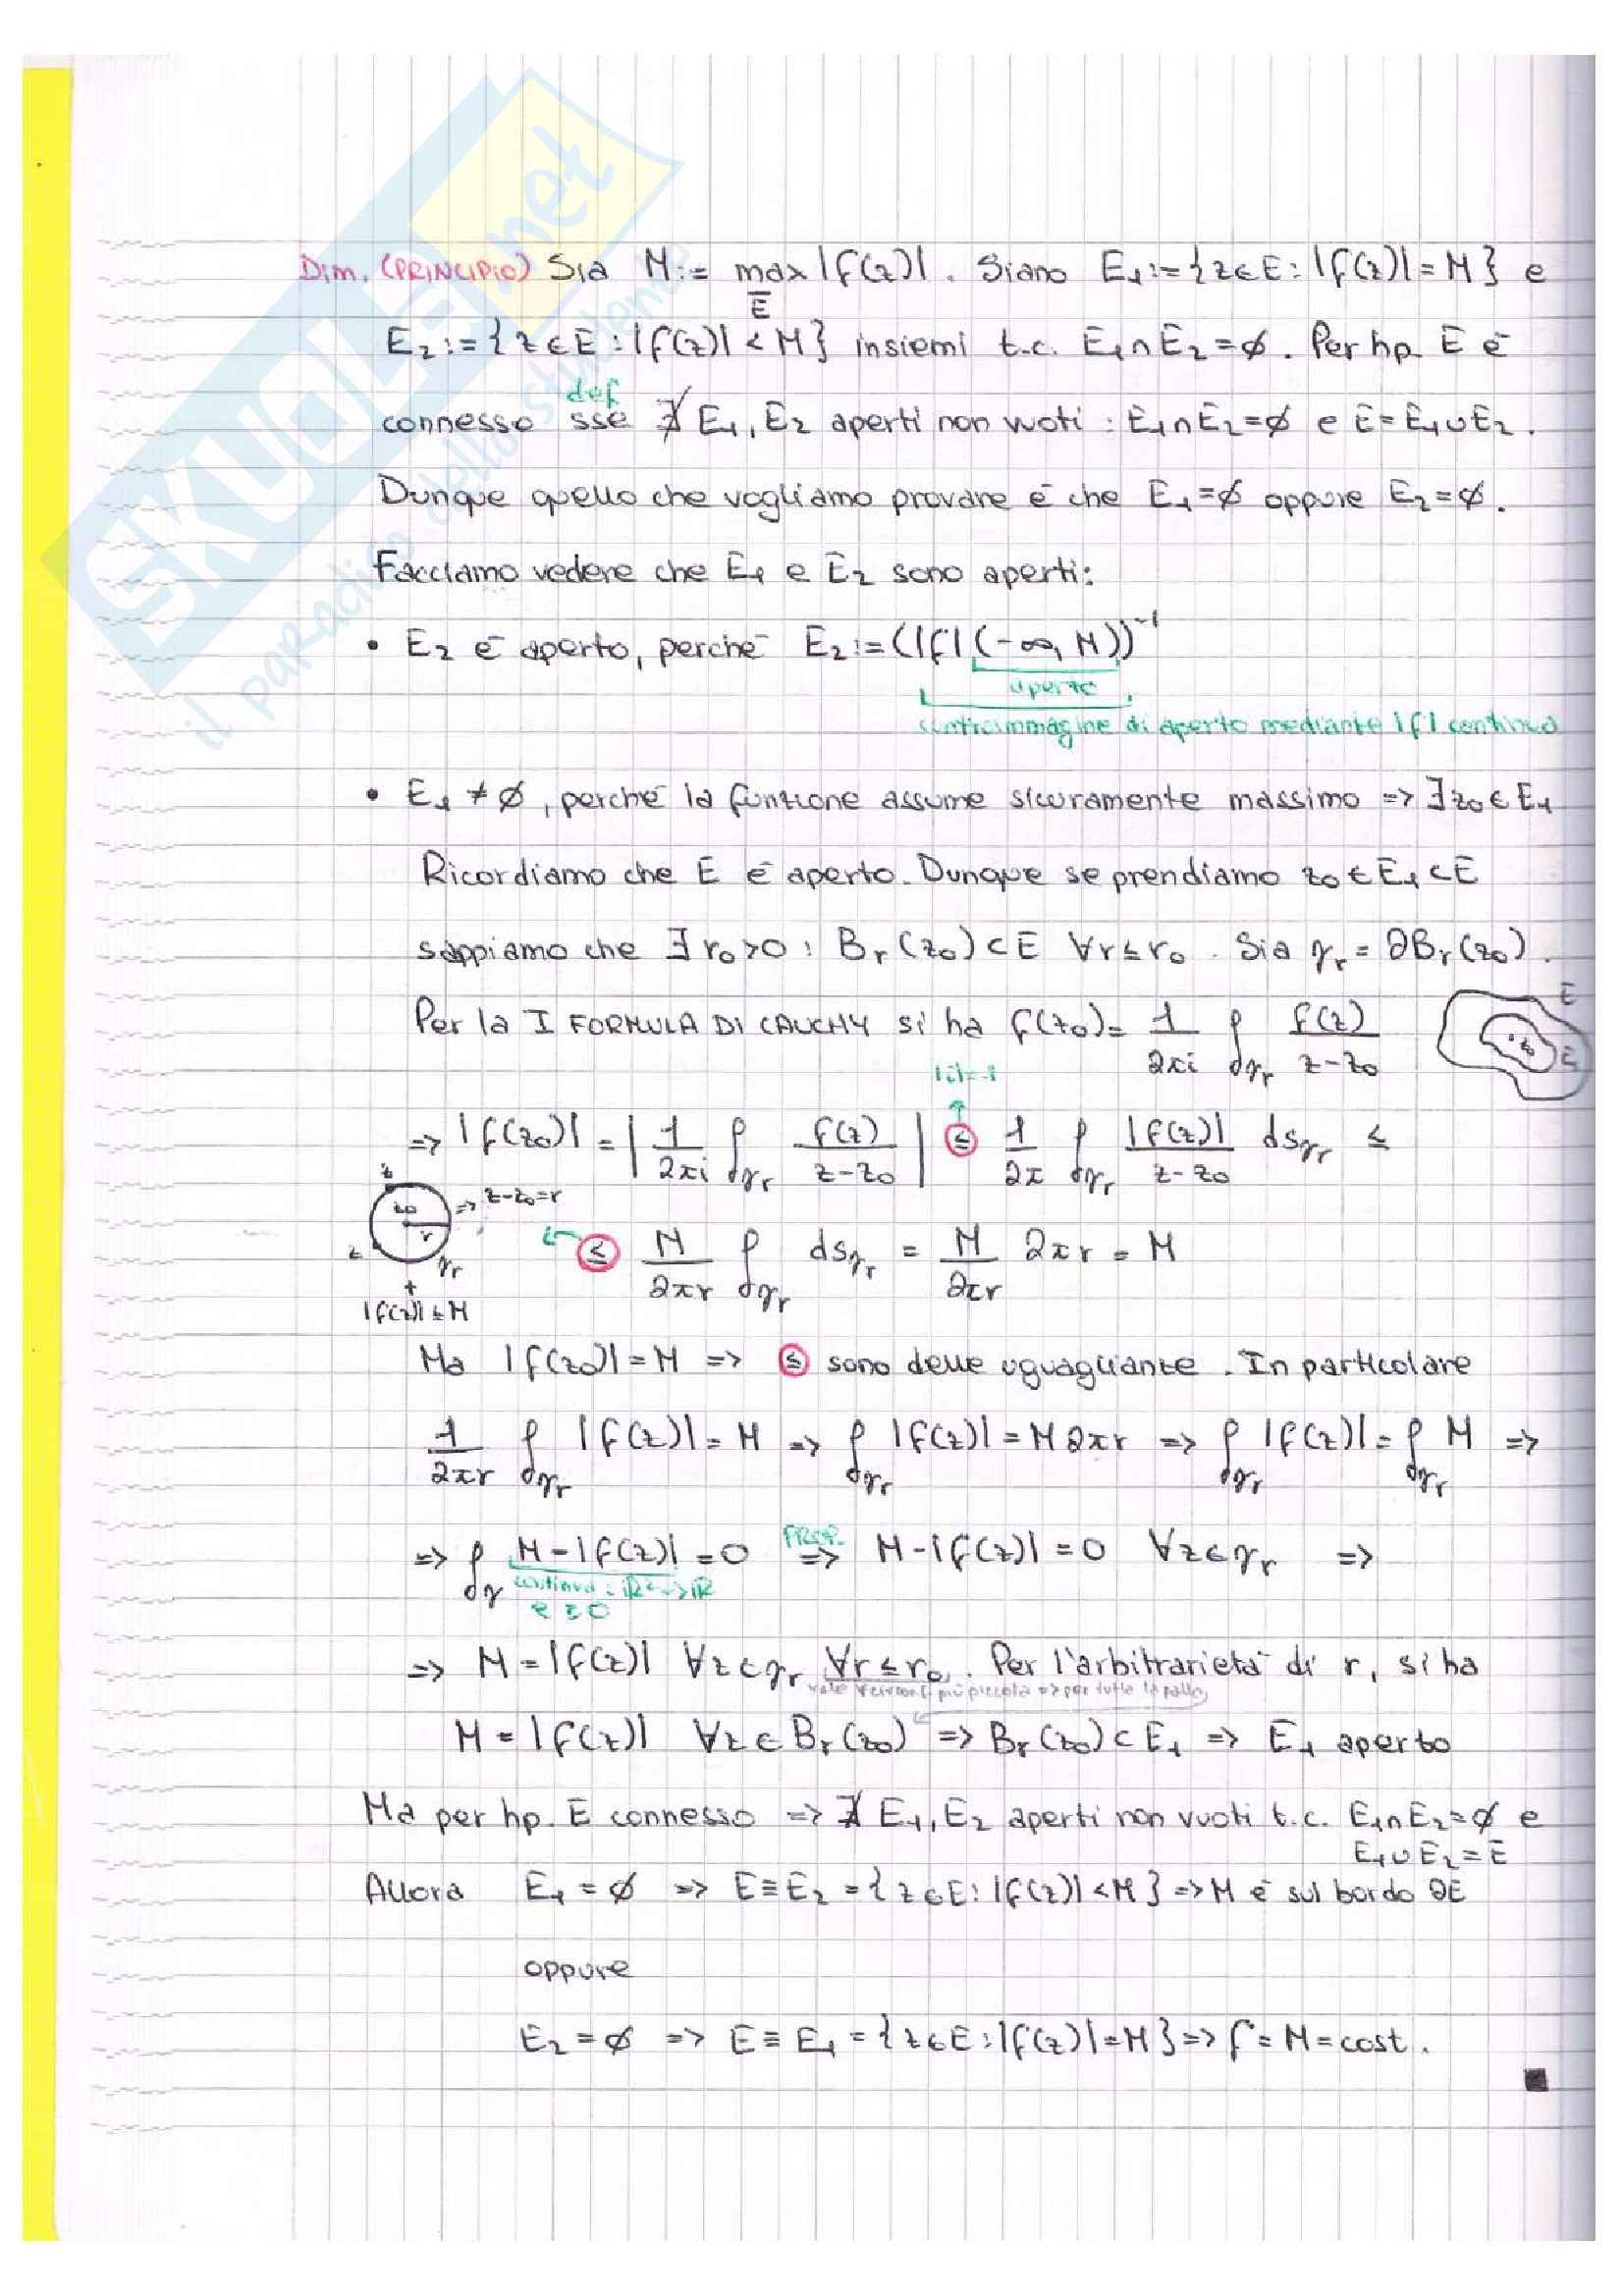 SKUOLA.net
il paradiso dello studente
Dim. (PRINCIPIO) Sia M := max |f(z)|. Siano E₁ := {z∈E : |f(z)| = M} e
E̅
E₂ := {z∈E : |f(z)| < M} insiemi t.c. E₁∩E₂ = ∅. Per hp. E è
def
connesso sse ∄ E₁, E₂ aperti non vuoti : E₁∩E₂ = ∅ e E = E₁∪E₂.
Dunque quello che vogliamo provare è che E₁ = ∅ oppure E₂ = ∅.
Facciamo vedere che E₁ e E₂ sono aperti:
• E₂ è aperto, perché E₂ := (|f|(-∞, M))⁻¹
aperto
controimmagine di aperto mediante |f| continua
• E₁ ≠ ∅, perché la funzione assume sicuramente massimo => ∃z₀ ∈ E₁
Ricordiamo che E è aperto. Dunque se prendiamo z₀ ∈ E₁ ⊂ E
sappiamo che ∃ r₀>0 : Bᵣ(z₀) ⊂ E ∀r≤r₀. Sia γᵣ = ∂Bᵣ(z₀).
Per la I FORMULA DI CAUCHY si ha f(z₀) = 1/2πi ∫γᵣ f(z)/z-z₀
E
z₀ E
|i|=1
=> |f(z₀)| = | 1/2πi ∫γᵣ f(z)/z-z₀ | ≤ 1/2π ∫γᵣ |f(z)|/z-z₀ dsγᵣ ≤
z
z₀ r => z-z₀=r
z γᵣ
+
|f(z)| ≤ M
≤ M/2πr ∫γᵣ dsγᵣ = M/2πr 2πr = M
Ma |f(z₀)| = M => ≤ sono delle uguaglianze. In particolare
1/2πr ∫γᵣ |f(z)| = M => ∫γᵣ |f(z)| = M2πr => ∫γᵣ |f(z)| = ∫γᵣ M =>
PROP.
=> ∫γ M-|f(z)| = 0 => M-|f(z)| = 0 ∀z∈γᵣ =>
continua : ℝ²->ℝ
e ≥0
=> M = |f(z)| ∀z∈γᵣ ∀r≤r₀. Per l'arbitrarietà di r, si ha
vale più piccola => per tutta la palla
M = |f(z)| ∀z∈Bᵣ(z₀) => Bᵣ(z₀) ⊂ E₁ => E₁ aperto
Ma per hp. E connesso => ∄ E₁, E₂ aperti non vuoti t.c. E₁∩E₂ = ∅ e
E₁∪E₂ = E
Allora E₁ = ∅ => E ≡ E₂ = {z∈E : |f(z)| < M} => M è sul bordo ∂E
oppure
E₂ = ∅ => E ≡ E₁ = {z∈E : |f(z)| = M} => f = M = cost.